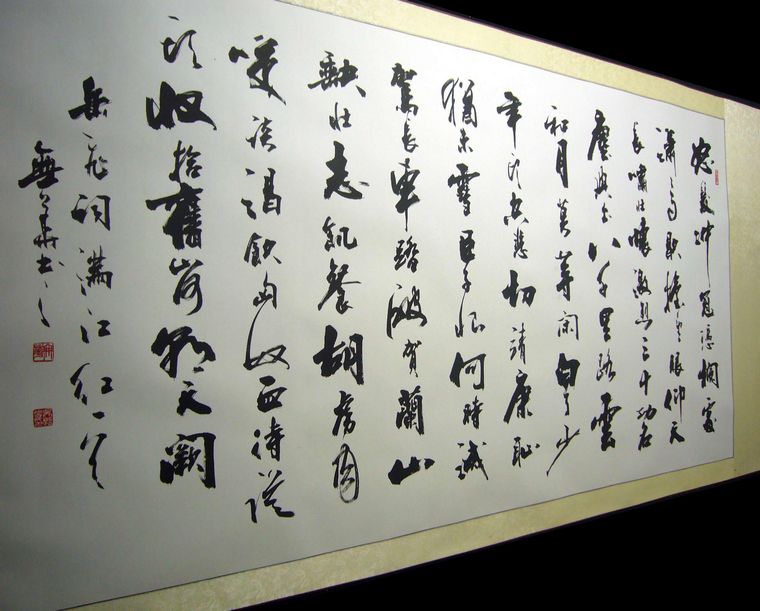 怒髮沖冠憑欄處
瀟瀟雨歇擡望眼仰天
長嘯壯懷激烈三十功名
塵與土八千里路雲
和月莫等閑白了少
年頭空悲切靖康恥
猶未雪臣子恨何時滅
駕長車踏破賀蘭山
缺壯志飢餐胡虜肉
笑談渴飲匈奴血待從
頭收拾舊山河朝天闕
岳飛詞滿江紅一首
無 書